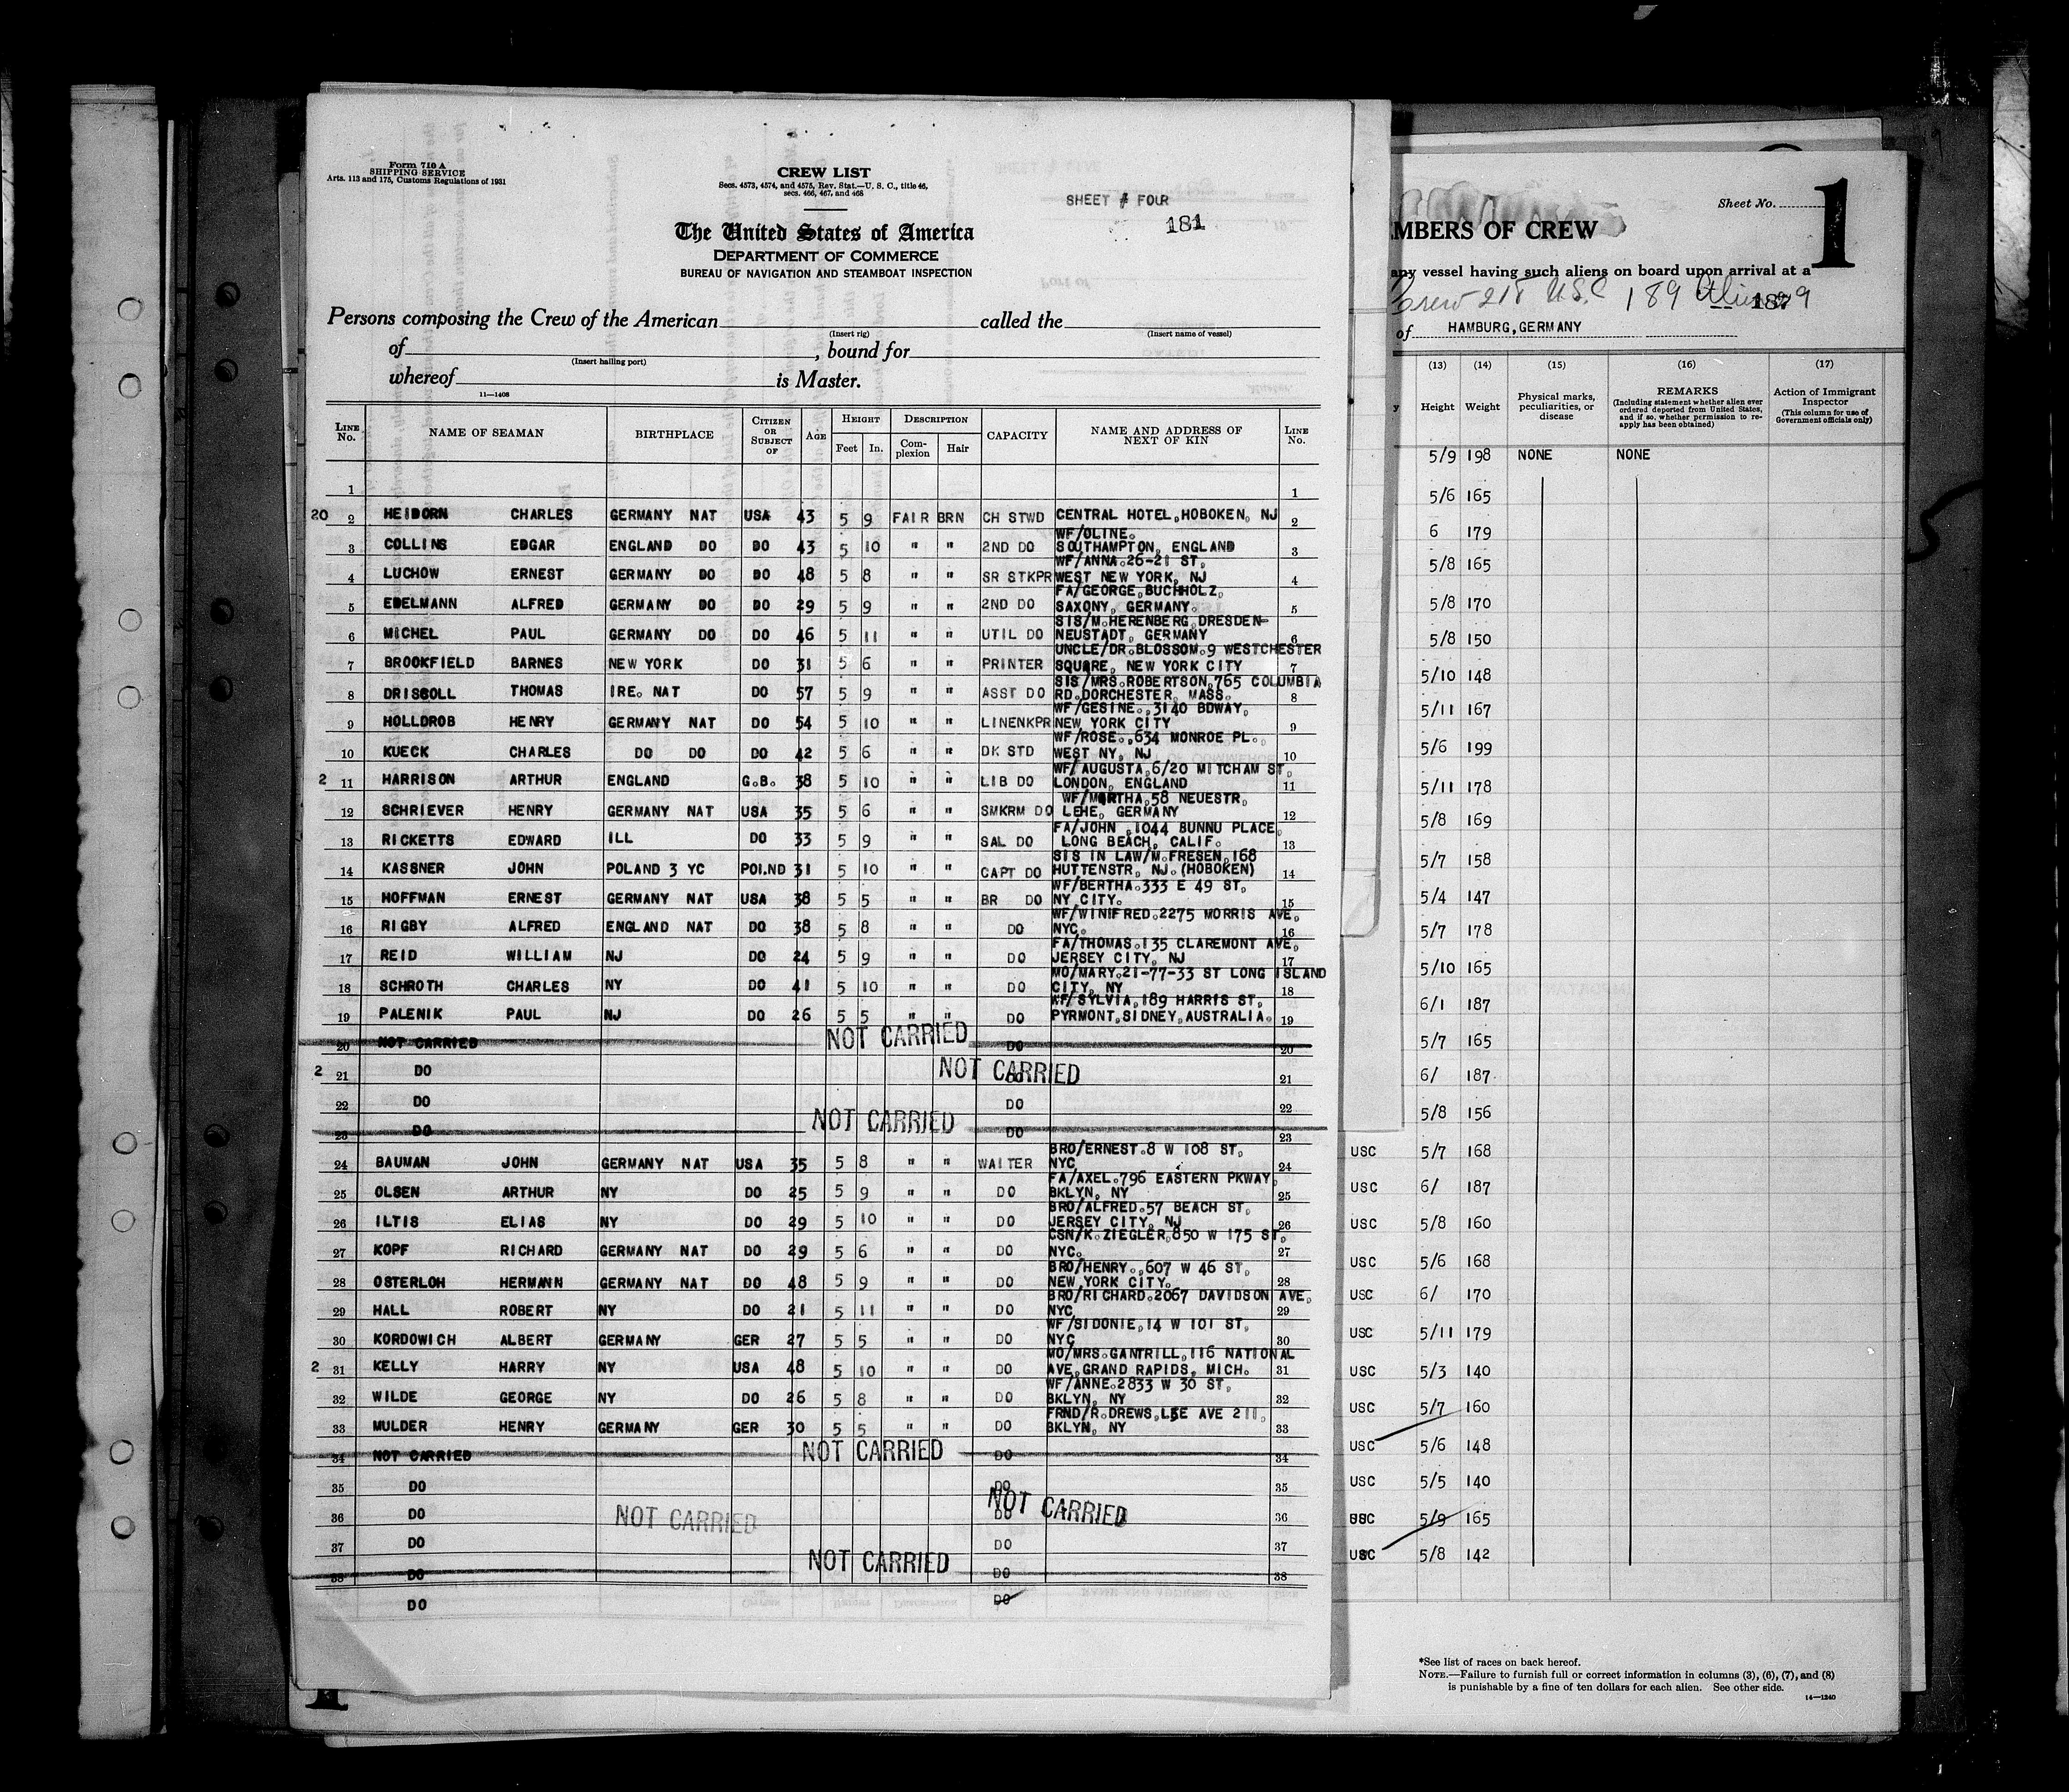 Form 710 A
SHIPPING SERVICE
Arts. 113 and 175, Customs Regulations of 1931
CREW LIST
Secs. 4573, 4574, and 4575, Rev. Stat.—U. S. C., title 46,
secs. 466, 467, and 468
SHEET # FOUR
181
The United States of America
DEPARTMENT OF COMMERCE
BUREAU OF NAVIGATION AND STEAMBOAT INSPECTION
Persons composing the Crew of the American called the
(Insert rig) (Insert name of vessel)
of , bound for
(Insert hailing port)
whereof is Master.
11—1408
LINE No. NAME OF SEAMAN BIRTHPLACE CITIZEN OR SUBJECT OF AGE HEIGHT Feet In. DESCRIPTION Complexion Hair CAPACITY NAME AND ADDRESS OF NEXT OF KIN LINE No.
1 1
20 2 HEIDORN CHARLES GERMANY NAT USA 43 5 9 FAIR BRN CH STWD CENTRAL HOTEL, HOBOKEN, NJ 2
3 COLLINS EDGAR ENGLAND DO DO 43 5 10 " " 2ND DO WF/OLINE. SOUTHAMPTON, ENGLAND 3
4 LUCHOW ERNEST GERMANY DO DO 48 5 8 " " SR STKPR WF/ANNA.26-21 ST, WEST NEW YORK, NJ 4
5 EDELMANN ALFRED GERMANY DO DO 29 5 9 " " 2ND DO FA/GEORGE,BUCHHOLZ, SAXONY, GERMANY. 5
6 MICHEL PAUL GERMANY DO DO 46 5 11 " " UTIL DO SIS/M.HERENBERG,DRESDEN- NEUSTADT, GERMANY 6
7 BROOKFIELD BARNES NEW YORK DO 31 5 6 " " PRINTER UNCLE/DR.BLOSSOM.9 WESTCHESTER SQUARE, NEW YORK CITY 7
8 DRISCOLL THOMAS IRE. NAT DO 57 5 9 " " ASST DO SIS/MRS.ROBERTSON,765 COLUMBIA RD.DORCHESTER, MASS. 8
9 HOLLDROB HENRY GERMANY NAT DO 54 5 10 " " LINENKPR WF/GESINE.,3140 BDWAY, NEW YORK CITY 9
10 KUECK CHARLES DO DO DO 42 5 6 " " DK STD WF/ROSE.,634 MONROE PL., WEST NY, NJ 10
2 11 HARRISON ARTHUR ENGLAND G.B. 38 5 10 " " LIB DO WF/AUGUSTA,6/20 MITCHAM ST, LONDON, ENGLAND 11
12 SCHRIEVER HENRY GERMANY NAT USA 35 5 6 " " SMKRM DO WF/MARTHA,58 NEUESTR, LEHE, GERMANY 12
13 RICKETTS EDWARD ILL DO 33 5 9 " " SAL DO FA/JOHN ,1044 BUNNU PLACE, LONG BEACH, CALIF. 13
14 KASSNER JOHN POLAND 3 YC POLND 31 5 10 " " CAPT DO SIS IN LAW/M.FRESEN,168 HUTTENSTR, NJ. (HOBOKEN) 14
15 HOFFMAN ERNEST GERMANY NAT USA 38 5 5 " " BR DO WF/BERTHA.333 E 49 ST, NY CITY. 15
16 RIGBY ALFRED ENGLAND NAT DO 38 5 8 " " DO WF/WINIFRED.2275 MORRIS AVE, NYC. 16
17 REID WILLIAM NJ DO 24 5 9 " " DO FA/THOMAS.135 CLAREMONT AVE, JERSEY CITY, NJ 17
18 SCHROTH CHARLES NY DO 41 5 10 " " DO MO/MARY.21-77-33 ST LONG ISLAND CITY, NY 18
19 PALENIK PAUL NJ DO 26 5 5 " " DO WF/SYLVIA,189 HARRIS ST, PYRMONT,SIDNEY,AUSTRALIA. 19
20 NOT CARRIED NOT CARRIED DO 20
2 21 DO NOT CARRIED DO 21
22 DO DO 22
23 DO NOT CARRIED DO 23
24 BAUMAN JOHN GERMANY NAT USA 35 5 8 " " WAITER BRO/ERNEST.8 W 108 ST, NYC 24
25 OLSEN ARTHUR NY DO 25 5 9 " " DO FA/AXEL.796 EASTERN PKWAY, BKLYN, NY 25
26 ILTIS ELIAS NY DO 29 5 10 " " DO BRO/ALFRED.57 BEACH ST, JERSEY CITY, NJ 26
27 KOPF RICHARD GERMANY NAT DO 29 5 6 " " DO CSN/K.ZIEGLER,850 W 175 ST, NYC. 27
28 OSTERLOH HERMANN GERMANY NAT DO 48 5 9 " " DO BRO/HENRY.,607 W 46 ST, NEW YORK CITY. 28
29 HALL ROBERT NY DO 21 5 11 " " DO BRO/RICHARD.2067 DAVIDSON AVE, NYC 29
30 KORDOWICH ALBERT GERMANY GER 27 5 5 " " DO WF/SIDONIE,14 W 101 ST, NYC 30
2 31 KELLY HARRY NY USA 48 5 10 " " DO MO/MRS.GANTRILL,116 NATIONAL AVE,GRAND RAPIDS, MICH. 31
32 WILDE GEORGE NY DO 26 5 8 " " DO WF/ANNE.2833 W 30 ST, BKLYN, NY 32
33 MULDER HENRY GERMANY GER 30 5 5 " " DO FRND/R.DREWS,LEE AVE 211, BKLYN, NY 33
34 NOT CARRIED NOT CARRIED DO 34
35 DO DO 35
36 DO NOT CARRIED DO NOT CARRIED 36
37 DO DO 37
38 DO NOT CARRIED DO 38
DO DO
Sheet No. 1
MBERS OF CREW
any vessel having such aliens on board upon arrival at a
Crew 218 USC 189 Aliens 29
187
of HAMBURG, GERMANY
(13) (14) (15) (16) (17)
y Height Weight Physical marks, peculiarities, or disease REMARKS (Including statement whether alien ever ordered deported from United States, and if so, whether permission to reapply has been obtained) Action of Immigrant Inspector (This column for use of Government officials only)
5/9 198 NONE NONE
5/6 165
6 179
5/8 165
5/8 170
5/8 150
5/10 148
5/11 167
5/6 199
5/11 178
5/8 169
5/7 158
5/4 147
5/7 178
5/10 165
6/1 187
5/7 165
6/ 187
5/8 156
USC 5/7 168
USC 6/ 187
USC 5/8 160
USC 5/6 168
USC 6/ 170
USC 5/11 179
USC 5/3 140
USC 5/7 160
USC 5/6 148
USC 5/5 140
USC 5/9 165
USC 5/8 142
*See list of races on back hereof.
NOTE.—Failure to furnish full or correct information in columns (3), (6), (7), and (8)
is punishable by a fine of ten dollars for each alien. See other side.
14—1240
1